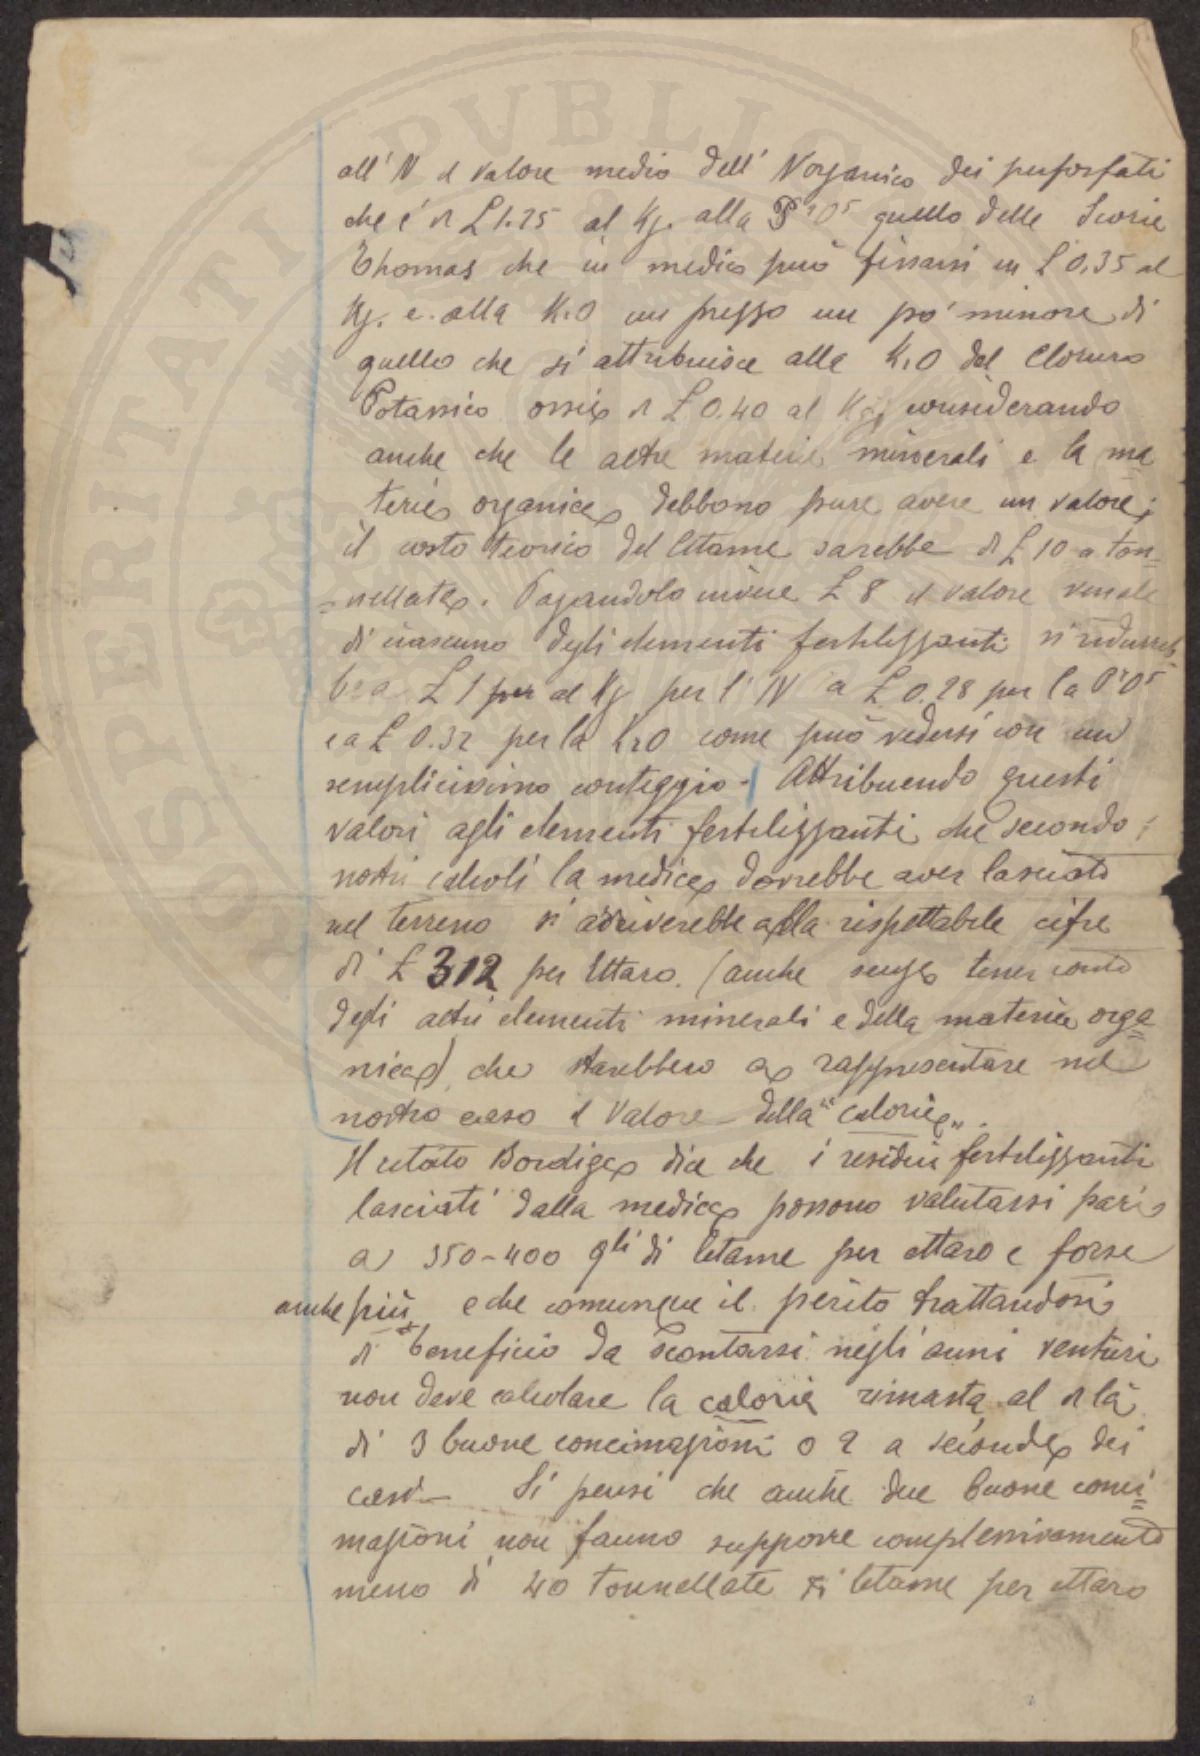 all' N il valore medio dell' N organico dei perfosfati
che è di £ 1.25 al Kg. alla P²O⁵ quello delle Scorie
Thomas che in media può fissarsi in £ 0.35 al
Kg. e alla K2O un prezzo un po' minore di
quello che si attribuisce alla K2O del Cloruro
Potassico ossia di £ 0.40 al Kg, considerando
anche che le altre materie minerali e la ma
teria organica debbono pure avere un valore;
il costo teorico del letame sarebbe di £ 10 a ton=
=nellata. Pagandolo invece £ 8 il valore venale
di ciascuno degli elementi fertilizzanti si ridurreb=
be a £ 1 al Kg per l' N a £ 0.28 per la P²O⁵
e a £ 0.32 per la K2O come può vedersi con un
semplicissimo conteggio - Attribuendo questi
valori agli elementi fertilizzanti che secondo i
nostri calcoli la medica dovrebbe aver lasciato
nel terreno si arriverebbe alla rispettabile cifra
di £ 312 per Ettaro. (anche senza tener conto
degli altri elementi minerali e della materia orga=
nica) che starebbero a rappresentare nel
nostro caso il Valore della "caloria".
Il citato Bordiga dice che i residui fertilizzanti
lasciati dalla medica possono valutarsi pari
a 350-400 qli di letame per ettaro e forse
anche più e che comunque il perito trattandosi
di beneficio da scontarsi negli anni venturi
non deve calcolare la caloria rimasta al di là
di 3 buone concimazioni o 2 a seconda dei
casi - Si pensi che anche due buone conci=
mazioni non fanno supporre complessivamente
meno di 40 tonnellate di letame per ettaro